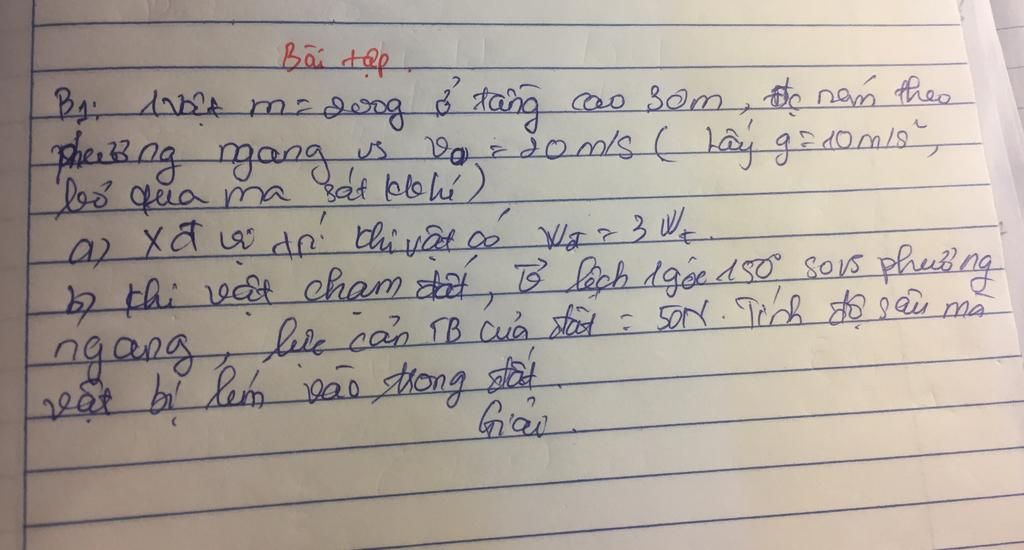 Bài tập.
B1: 1 vật m = 200g ở tầng cao 30m, đc ném theo
phương ngang vs v0 = 20m/s ( Lấy g = 10m/s²,
bỏ qua ma sát kk hí)
a) XĐ vị trí khi vật có Wđ = 3 Wt.
b) khi vật chạm đất, v⃗ lệch 1 góc 150° so vs phương
ngang, lực cản TB của đất = 50N. Tính độ sâu mà
vật bị lún vào trong đất.
Giải.